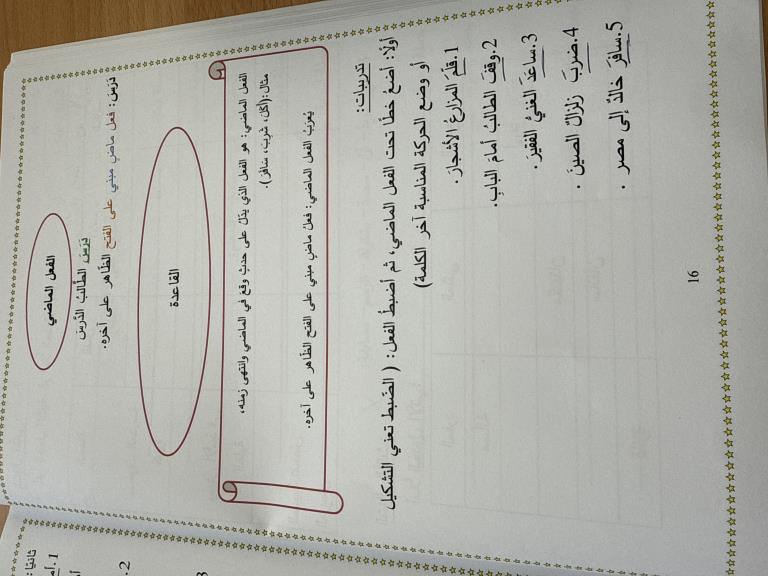 الفعل الماضي
دَرَسَ الطّالبُ الدَّرسَ
دَرَسَ: فعل ماضٍ مبني على الفتح الظّاهر على آخره.
القاعدة
الفعل الماضي: هو الفعل الذي يدّلُ على حدثٍ وقعَ في الماضي وانتهى زمنه،
مثال:(أكلَ، شربَ، سَافرَ).
يُعرَبُ الفعل الماضي: فعلٌ ماضٍ مبني على الفتح الظّاهر على آخره.
تدريبات:
أولًا: أضعُ خطًا تحت الفعل الماضي، ثم أضبطُ الفعل: ( الضّبط تعني التشكيل
أو وضع الحركة المناسبة آخر الكلمة)
1.قلمَ المزارعُ الأشجارَ .
2.وقفَ الطالبُ أمامَ البابِ.
3.ساعدَ الغنيُّ الفقيرَ .
4.ضربَ زلزالٌ الصينَ .
5.سافرَ خالدٌ إلى مصر .
16
ثانيًا:
1
2.
3